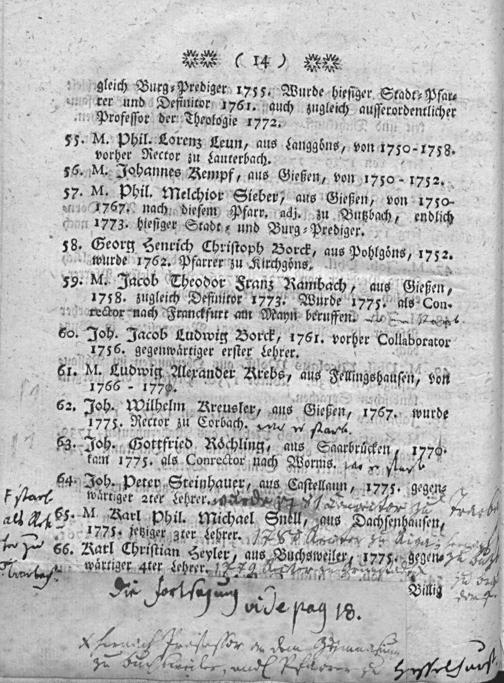 ( 14 )
gleich Burg-Prediger 1755. Wurde hiesiger Stadt-Pfar-
rer und Definitor 1761. auch zugleich ausserordentlicher
Professor der Theologie 1772.
55. M. Phil. Lorenz Leun, aus Langgöns, von 1750-1758.
vorher Rector zu Lauterbach.
56. M. Johannes Kempf, aus Gießen, von 1750-1752.
57. M. Phil. Melchior Sieber, aus Gießen, von 1750-
1767. nach diesem Pfarr. adj. zu Butzbach, endlich
1773. hiesiger Stadt- und Burg-Prediger.
58. Georg Henrich Christoph Borck, aus Pohlgöns, 1752.
wurde 1762. Pfarrer zu Kirchgöns.
59. M. Jacob Theodor Franz Rambach, aus Gießen,
1758. zugleich Definitor 1773. Wurde 1775. als Con-
rector nach Franckfurt am Mayn beruffen.
60. Joh. Jacob Ludwig Borck, 1761. vorher Collaborator
1756. gegenwärtiger erster Lehrer.
61. M. Ludwig Alexander Krebs, aus Fellingshausen, von
1766 - 1770.
62. Joh. Wilhelm Kreusler, aus Gießen, 1767. wurde
1775. Rector zu Corbach. wo er starb.
63. Joh. Gottfried Röchling, aus Saarbrücken, 1770.
kam 1775. als Conrector nach Worms. wo er starb
64. Joh. Peter Steinhauer, aus Castellaun, 1775. gegen-
wärtiger 2ter Lehrer.
65. M Karl Phil. Michael Snell, aus Dachsenhausen,
1775. jetziger 3ter Lehrer.
66. Karl Christian Heyler, aus Buchsweiler, 1775. gegen-
wärtiger 4ter Lehrer.
Billig
Die fortsetzung
vide pag 18.